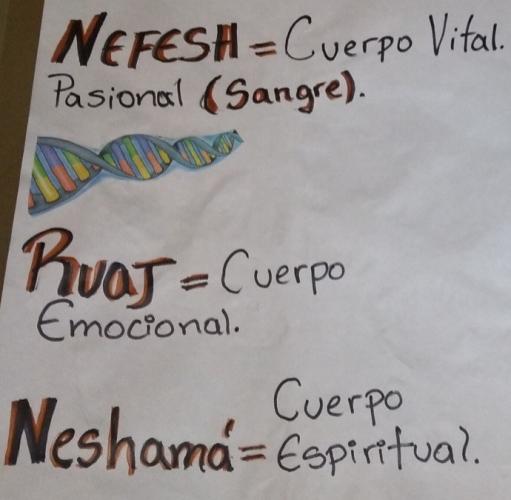 NEFESH = Cuerpo Vital.
Pasional (Sangre).
RuaJ = Cuerpo
Emocional.
Cuerpo
Neshamá = Espiritual.